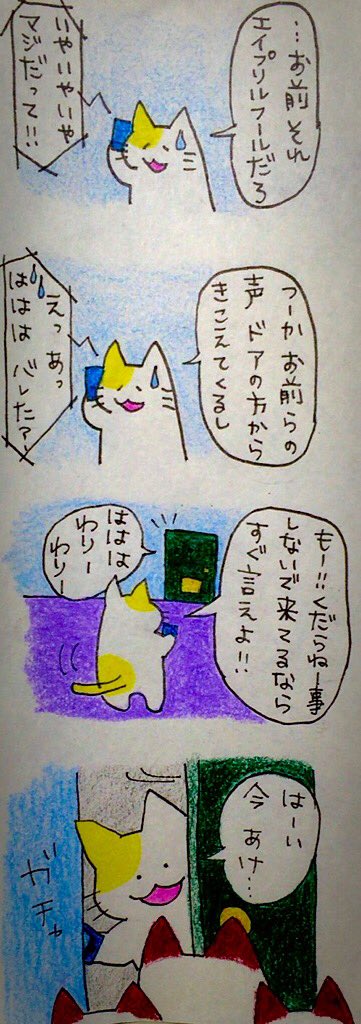 …お前それ
エイプリルフールだろ
いやいやいや
マジだって!!
つーかお前らの
声ドアの方から
きこえてくるし
えっあっ
ははは バレた?
もー!!くだらねー事
しないで来てるなら
すぐ言えよ!!
ははは
わりー
わりー
はーい
今あけ…
ガチャ